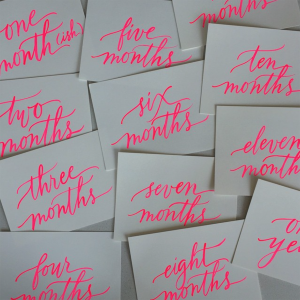 one
month (ish)
five
months
months
ten
months
two
months
six
months
eleven
months
three
months
seven
months
four
months
eight
months